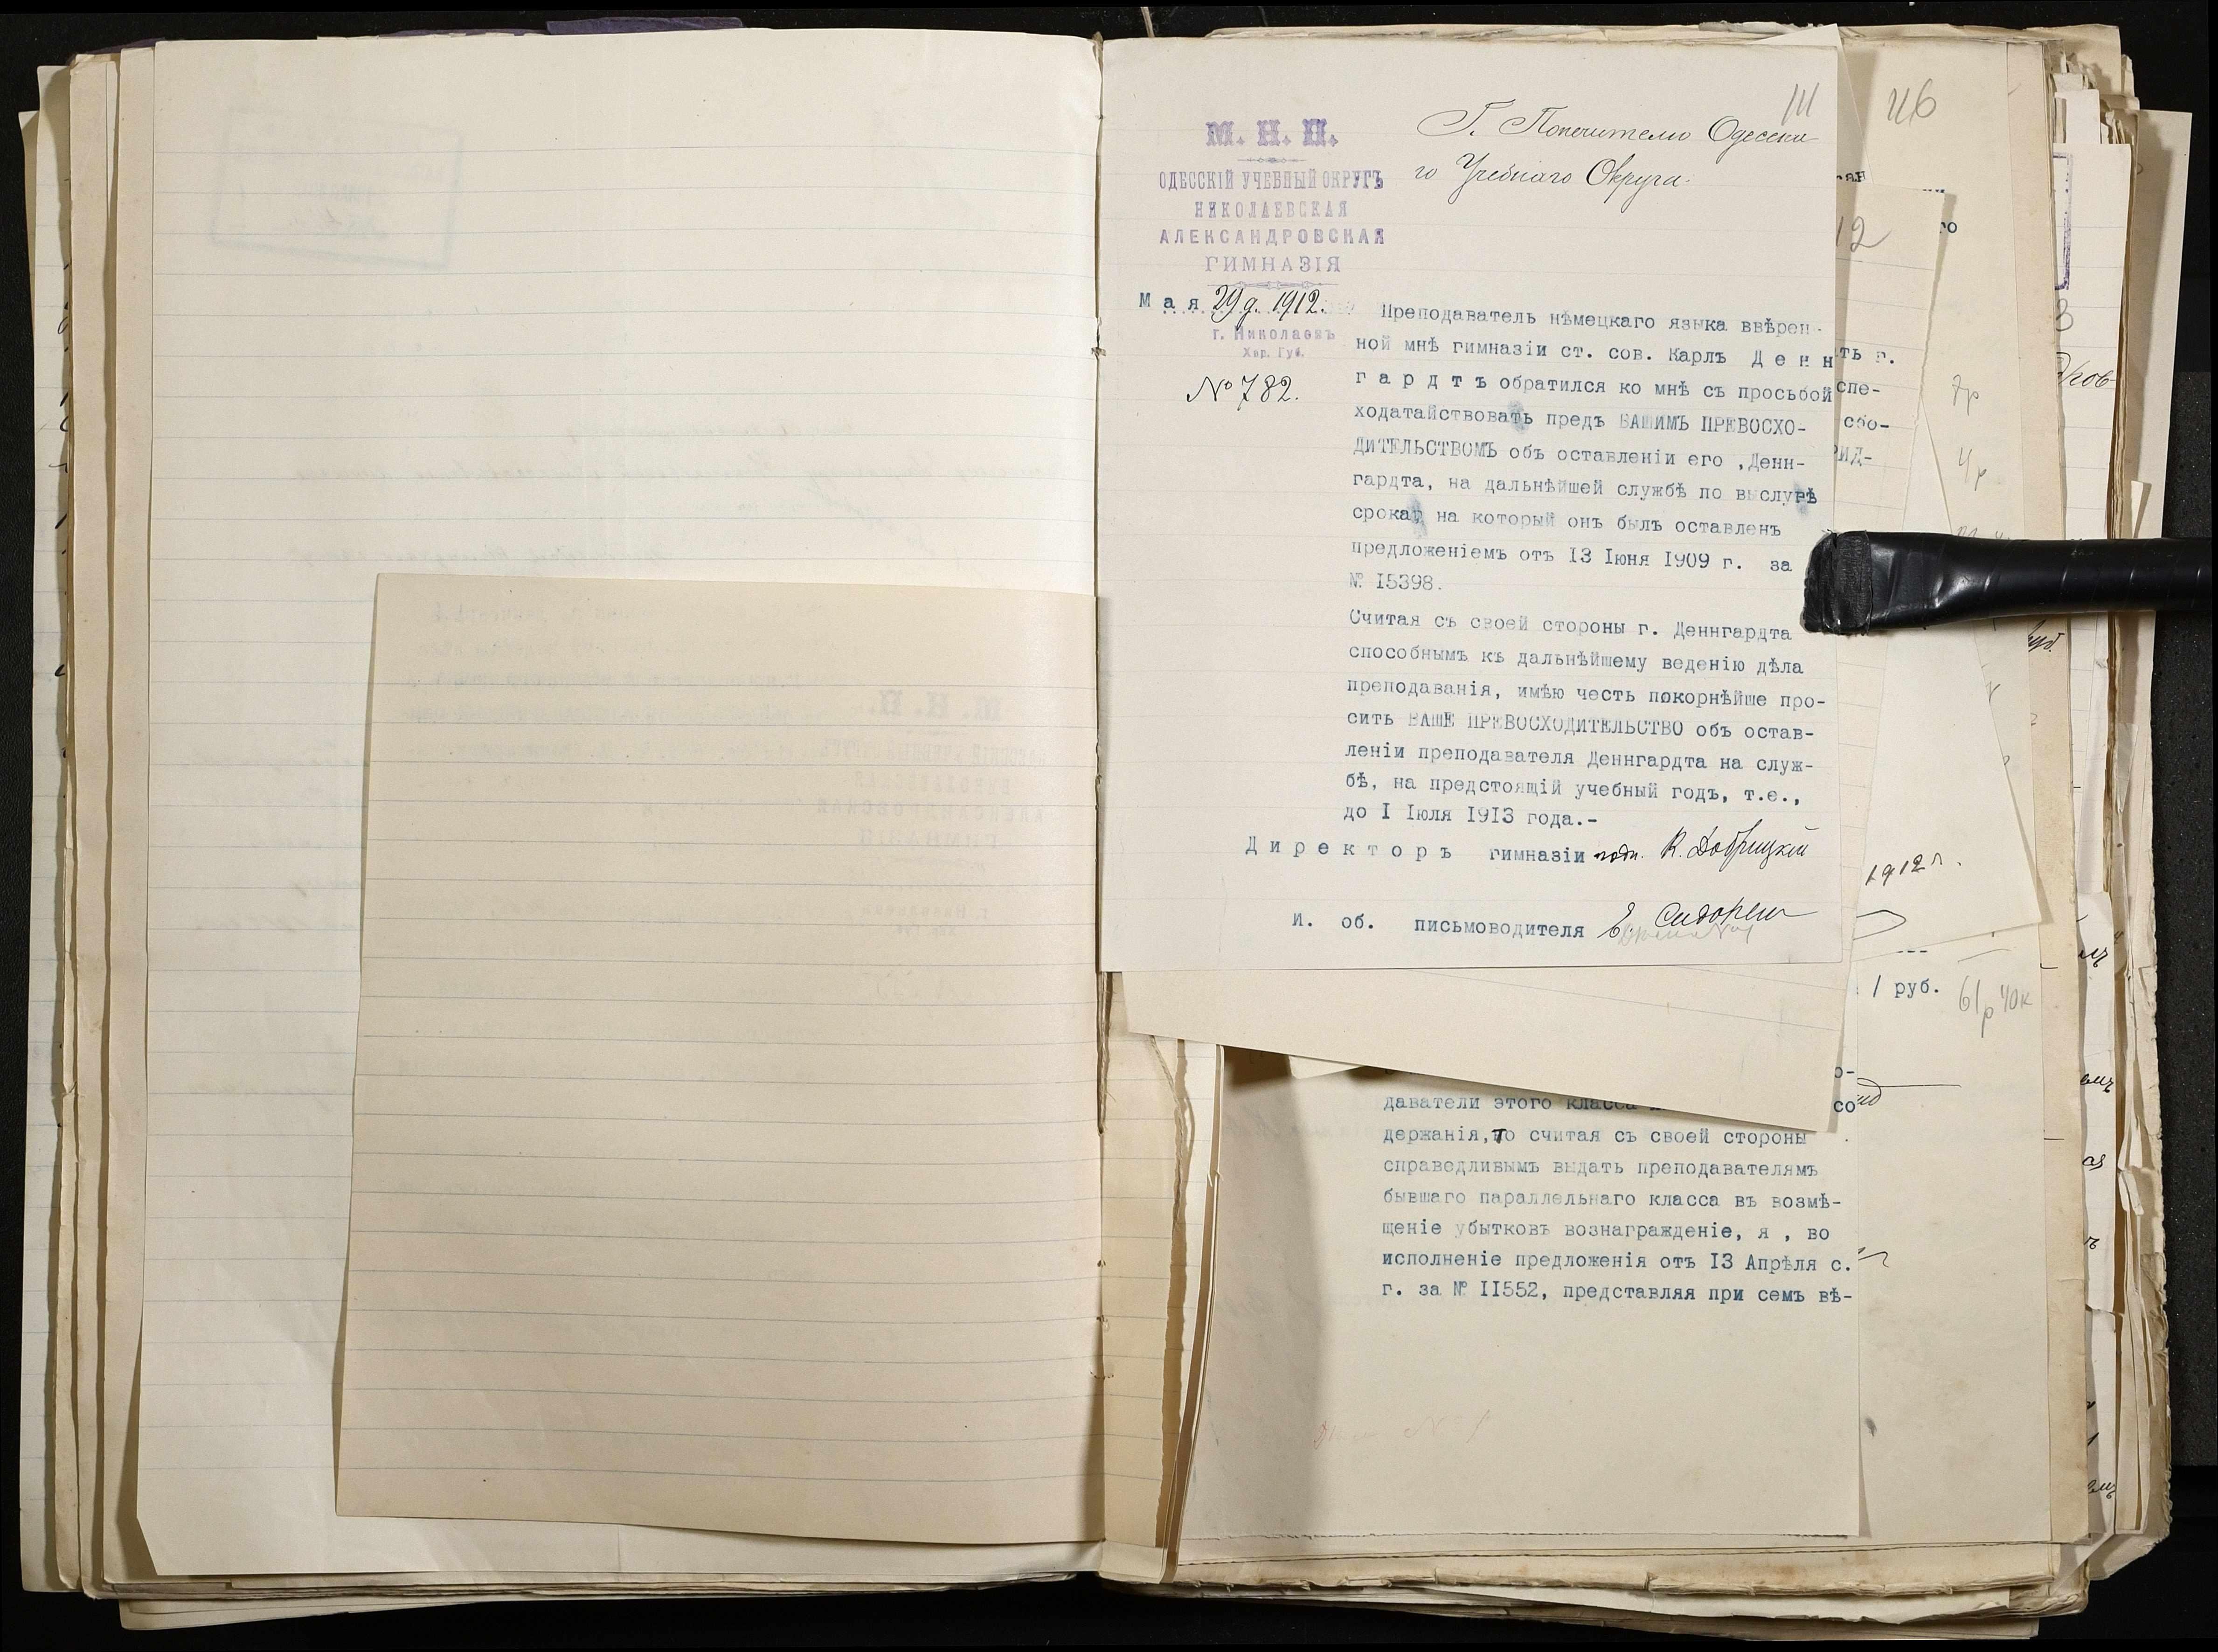 111
М. Н. П.
ОДЕССКІЙ УЧЕБНЫЙ ОКРУГЪ
НИКОЛАЕВСКАЯ
АЛЕКСАНДРОВСКАЯ
ГИМНАЗІЯ
Мая 29 д. 1912.
г. Николаевъ
Хер. Губ.
№ 782.
Г. Попечителю Одесска-
го Учебнаго Округа.
Преподаватель нѣмецкаго языка ввѣрен-
ной мнѣ гимназіи ст. сов. Карлъ Денн
гардтъ обратился ко мнѣ съ просьбой
ходатайствовать предъ ВАШИМЪ ПРЕВОСХО-
ДИТЕЛЬСТВОМЪ объ оставленіи его ,Денн-
гардта, на дальнѣйшей службѣ по выслугѣ
срока, на который онъ былъ оставленъ
предложеніемъ отъ 13 Іюня 1909 г. за
№ 15398.
Считая съ своей стороны г. Деннгардта
способнымъ къ дальнѣйшему веденію дѣла
преподаванія, имѣю честь покорнѣйше про-
сить ВАШЕ ПРЕВОСХОДИТЕЛЬСТВО объ остав-
леніи преподавателя Деннгардта на служ-
бѣ, на предстоящій учебный годъ, т.е.,
до I Іюля 1913 года.-
Директоръ гимназіи подп. К. Добрицкій
И. об. письмоводителя Е. Сидорен
даватели этого класса
со
держанія,то считая съ своей стороны
справедливымъ выдать преподавателямъ
бывшаго параллельнаго класса въ возмѣ-
щеніе убытковъ вознагражденіе, я , во
исполненіе предложенія отъ 13 Апрѣля с.
г. за № 11552, представляя при семъ вѣ-
116
12
ть г.
спе-
сбо-
РИД-
7р
4р
1912 г.
1 руб.
61р 40к